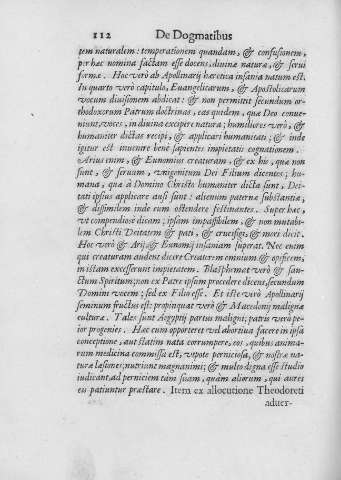 112 De Dogmatibus
tem naturalem: temperationem quandam, & confusionem,
per hæc nomina factam esse docens, diuinæ naturæ, & serui
formæ. Hoc verò ab Apollinarij hæretica insania natum est.
In quarto verò capitulo, Euangelicarum, & Apostolicarum
vocum diuisionem abdicat: & non permittit secundum or-
thodoxorum Patrum doctrinas, eas quidem, quæ Deo conue-
niunt, voces, in diuina excipere natura; humiliores verò, &
humaniter dictas recipi, & applicari humanitati; & inde
igitur est inuenire benè sapientes impietatis cognationem.
Arius enim, & Eunomius creaturam, & ex his, quæ non
sunt, & seruum, vnigenitum Dei Filium dicentes; hu-
mana, quæ à Domino Christo humaniter dicta sunt, Dei-
tati ipsius applicare ausi sunt: alienum paternæ substantiæ,
& dissimilem inde eum ostendere festinantes. Super hæc,
vt comprendiose dicam; ipsam impassibilem, & non mutabi-
lem Christi Deitatem & pati, & crucifigi, & mori dicit.
Hoc verò & Arij, & Eunomij insaniam superat. Nec enim
qui creaturam audent dicere Creatorem omnium & opificem,
in istam excesserunt impietatem. Blasphemat verò & san-
ctum Spiritum; non ex Patre ipsum procedere dicens, secundum
Domini vocem; sed ex Filio esse. Et iste verò Apollinarij
seminum fructus est: propinquat verò & Macedonij malignæ
culturæ. Tales sunt Aegyptij partus maligni; patris verò pe-
ior progenies. Hæc cum oporteret vel abortiua facere in ipsa
conceptione, aut statim nata corrumpere, eos, quibus anima-
rum medicina commissa est, vtpote perniciosa, & nostræ na-
turæ læsiones; nutriunt magnanimi; & multo digna esse studio
iudicant, ad perniciem tam suam, quàm aliorum, qui aures
eis patiuntur præstare. Item ex allocutione Theodoreti
aduer-